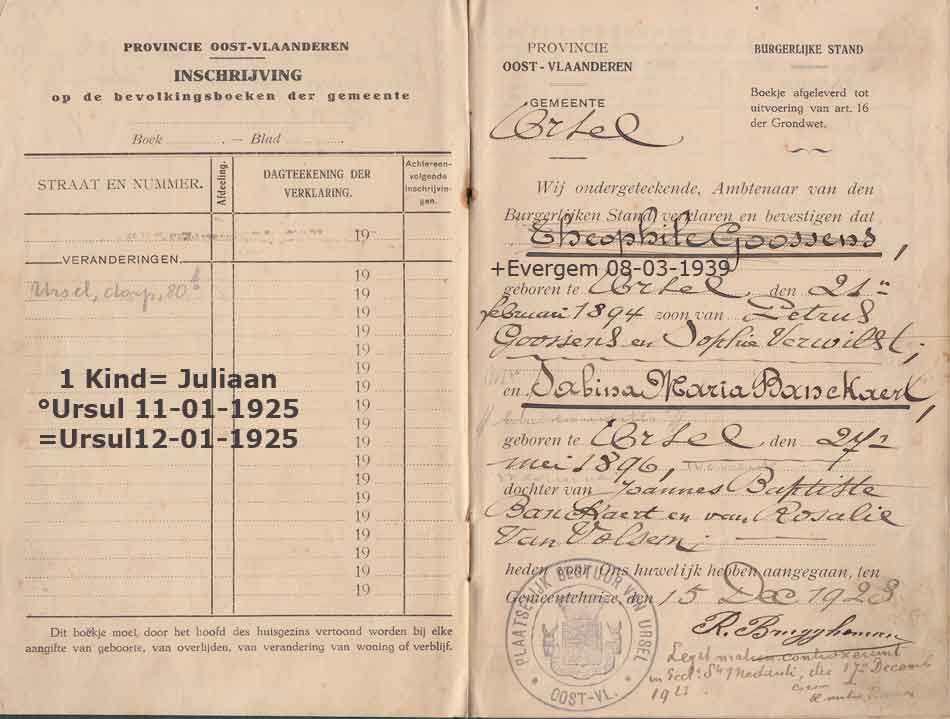 PROVINCIE OOST-VLAANDEREN
INSCHRIJVING
op de bevolkingsboeken der gemeente
Boek . — Blad .
STRAAT EN NUMMER.
Afdeeling.
DAGTEEKENING DER
VERKLARING.
Achtereen-
volgende
inschrijvin-
gen.
19
VERANDERINGEN.
19
Ursel, dorp, 80 b 19
19
19
19
19
1 Kind= Juliaan
°Ursul 11-01-1925
=Ursul12-01-1925
19
19
19
19
19
19
19
19
19
19
19
Dit boekje moet door het hoofd des huisgezins vertoond worden bij elke
aangifte van geboorte, van overlijden, van verandering van woning of verblijf.
PROVINCIE
OOST-VLAANDEREN
GEMEENTE
Ursel
BURGERLIJKE STAND
Boekje afgeleverd tot
uitvoering van art. 16
der Grondwet.
Wij ondergeteekende, Ambtenaar van den
Burgerlijken Stand, verklaren en bevestigen dat
Theophile Goossens,
+Evergem 08-03-1939
geboren te Ursel, den 21n
februari 1894 zoon van Petrus
Goossens en Sophie Verwilst;
en Sabina Maria Banckaert,
geboren te Ursel, den 27n
mei 1896,
dochter van Joannes Baptiste
Banckaert en van Rosalie
Van Volsem;
heden voor Ons huwelijk hebben aangegaan, ten
Gemeentehuize, den 15 Dec 1923
R. Bruggheman
PLAATSELIJK BESTUUR VAN URSEL
OOST-VL.
contraxerunt
in Eccl. Sti Medardi, die 17a Decemb